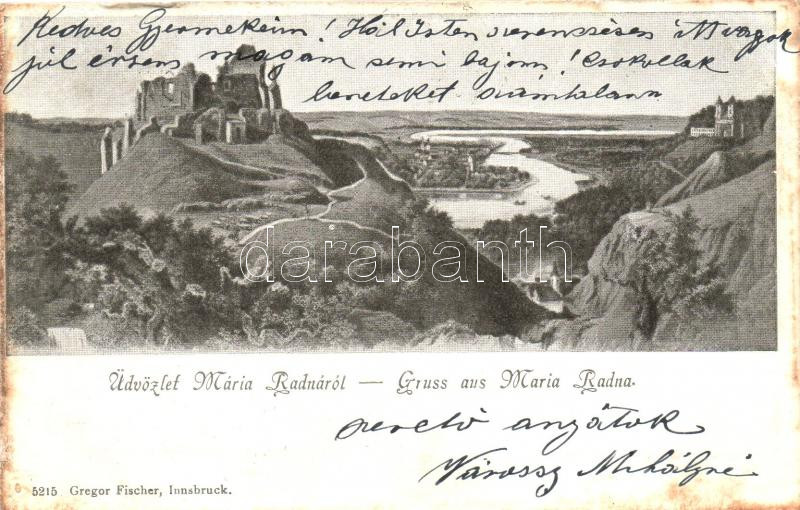 Kedves Gyermekeim! Hál Isten szerencsésen itt vagyok
jól érzem magam semi bajom! Csokollak
beneteket számtalann
darabanth
Üdvözlet Mária Radnáról — Gruss aus Maria Radna.
szerető anyátok
Várossy Mihályné
5215 Gregor Fischer, Innsbruck.